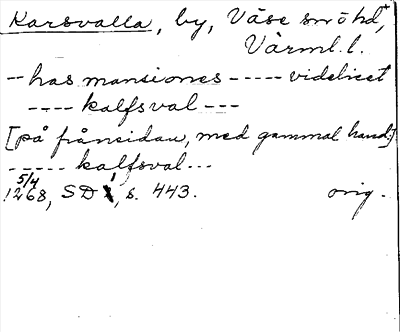 Karsvalla, by, Väse sn o hd,
Värml. l.
-- has mansiones ----- videlicet
---- kalfsval ---
[på frånsidan, med gammal hand:]
----- kalfsval ---
5/4
1268, SD 1, s. 443. orig.